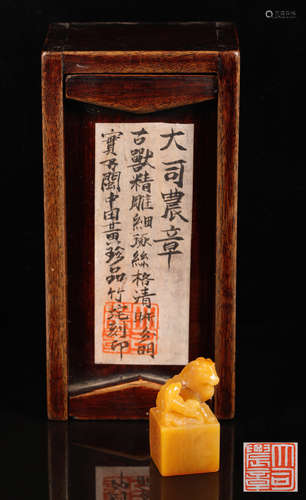 大司農章
古獸精雕細琢絲格清晰分明
實乃閩中田黃珍品竹垞刻印
大司
農章